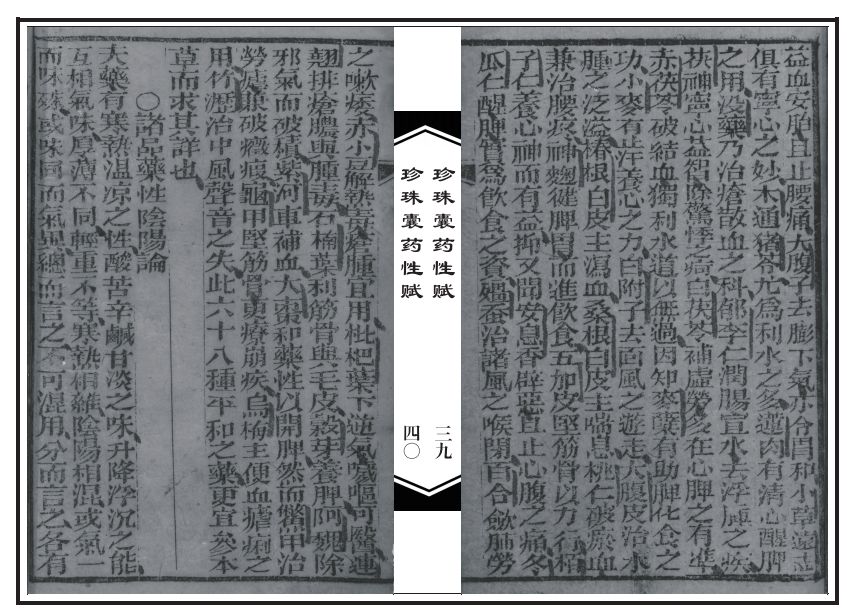 益血安胎且止腰痛大腹子去膨下氣亦令胃和小草遠志
俱有寧心之妙木通猪苓尤為利水之多蓮肉有清心醒脾
之用没藥乃治瘡散血之科郁李仁潤腸宣水去浮腫之疾
茯神寧心益智除驚悸之痾白茯苓補虛勞多在心脾之有凖
赤茯苓破結血獨利水道以無過因知麥蘖有助脾化食之
功小麥有止汗養心之力白附子去面風之遊走大腹皮治水
腫之泛溢椿根白皮主瀉血桑根白皮主喘息桃仁破瘀血
兼治腰疼神麴健脾胃而進飲食五加皮堅筋骨以力行栢
子仁養心神而有益抑又聞安息香辟惡且止心腹之痛冬
瓜仁醒脾實為飲食之資殭蚕治諸風之喉閉百合歛肺勞
珍珠囊药性赋
三九
珍珠囊药性赋
四〇
之嗽痿赤小荳解熱毒瘡腫宜用枇杷葉下逆氣噦嘔可醫連
翹排瘡膿與腫毒石楠葉利筋骨與毛皮穀芽養脾阿魏除
邪氣而破積紫河車補血大棗和藥性以開脾然而鱉甲治
勞瘧兼破癥瘕龜甲堅筋骨更療崩疾烏梅主便血瘧痢之
用竹瀝治中風聲音之失此六十八種平和之藥更宜參本
草而求其詳也
○諸品藥性陰陽論
夫藥有寒熱温凉之性酸苦辛鹹甘淡之味升降浮沉之能
互相氣味厚薄不同輕重不等寒熱相雜陰陽相混或氣一
而味殊或味同而氣異總而言之不可混用分而言之各有